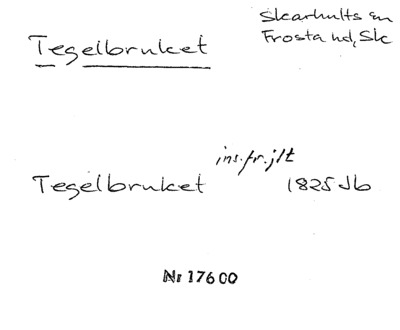 Skarhults sn
Frosta hd, Sk
Tegelbruket
ins.fr.jlt
Tegelbruket 1825 Jb
Nr 17600